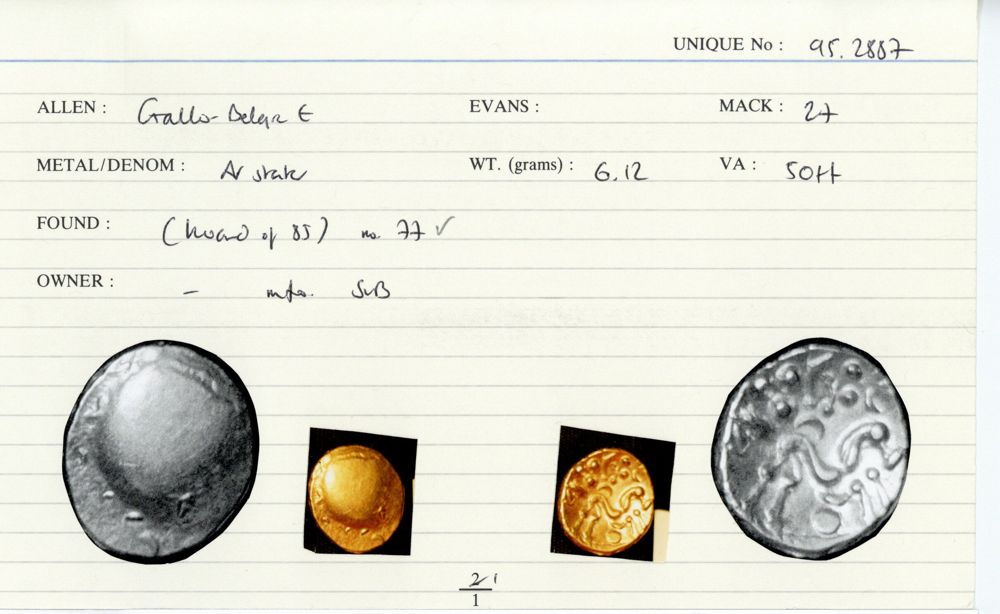 UNIQUE No : 95.2887
ALLEN : Gallo-Belgic E EVANS : MACK : 27
METAL/DENOM : AV stater WT. (grams) : 6.12 VA :
FOUND : (hoard of 85) no. 77 ✓
OWNER : – info. SvB
2
1